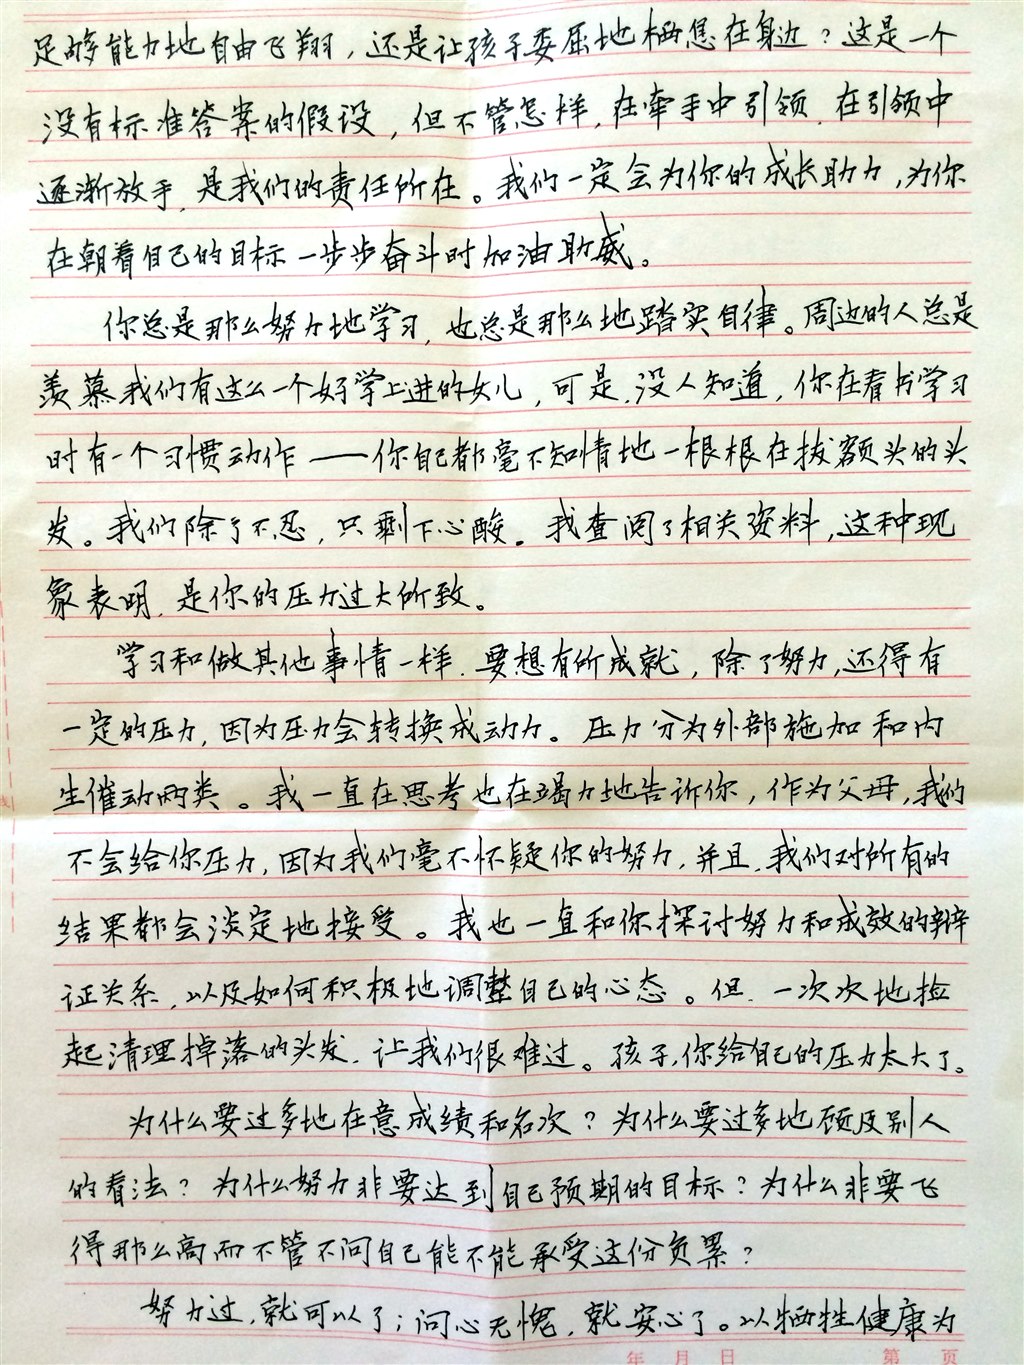 足够能力地自由飞翔，还是让孩子委屈地栖息在身边？这是一个
没有标准答案的假设，但不管怎样，在牵手中引领，在引领中
逐渐放手，是我们的责任所在。我们一定会为你的成长助力，为你
在朝着自己的目标一步步奋斗时加油助威。
你总是那么努力地学习，也总是那么地踏实自律。周边的人总是
羡慕我们有这么一个好学上进的女儿，可是，没人知道，你在看书学习
时有一个习惯动作——你自己都毫不知情地一根根在拔额头的头
发。我们除了不忍，只剩下心酸。我查阅了相关资料，这种现
象表明，是你的压力过大所致。
学习和做其他事情一样，要想有所成就，除了努力，还得有
一定的压力，因为压力会转换成动力。压力分为外部施加和内
生催动两类。我一直在思考也在竭力地告诉你，作为父母，我们
不会给你压力，因为我们毫不怀疑你的努力，并且，我们对所有的
结果都会淡定地接受。我也一直和你探讨努力和成效的辩
证关系，以及如何积极地调整自己的心态。但，一次次地捡
起清理掉落的头发，让我们很难过。孩子，你给自己的压力太大了。
为什么要过多地在意成绩和名次？为什么要过多地顾及别人
的看法？为什么努力非要达到自己预期的目标？为什么非要飞
得那么高而不管不问自己能不能承受这份负累？
努力过，就可以了；问心无愧，就安心了。以牺牲健康为
年 月 日 第 页
线